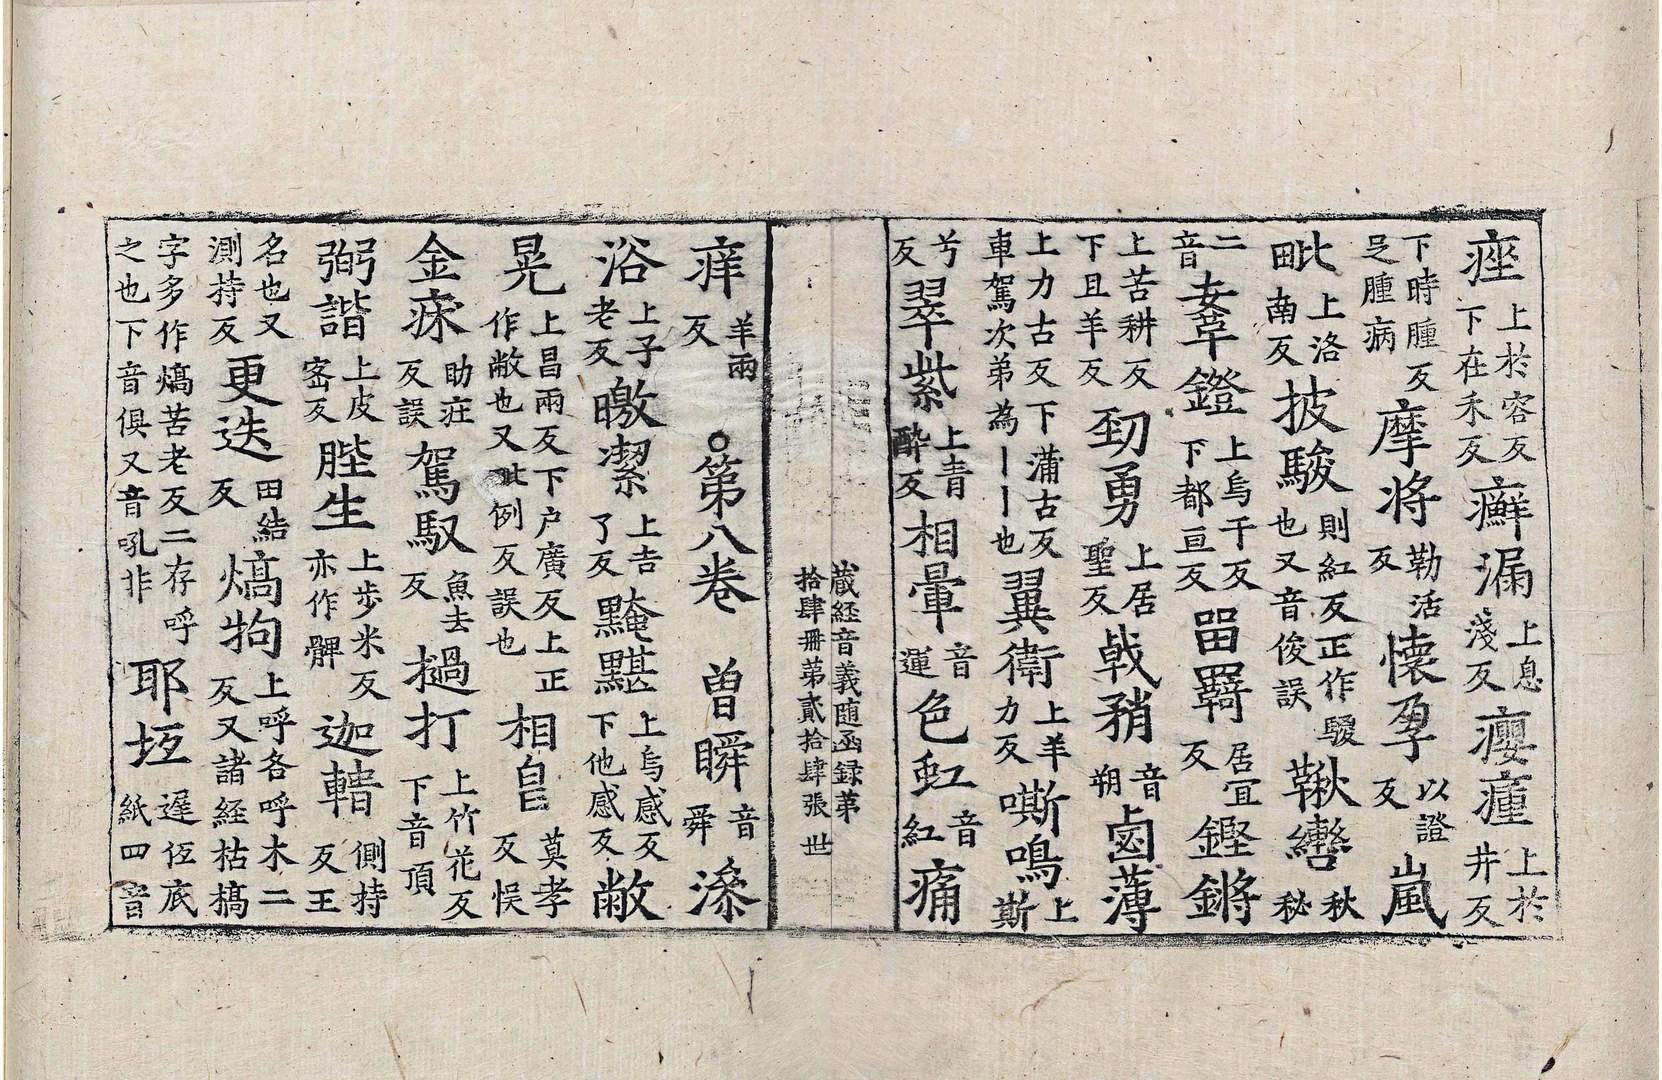 痤上於容反下在禾反癬漏上息淺反癭瘇上於井反
下時腫反𠯁腫病摩将勒活反懐孕以證反嵐
毗上洛田南反披駿則紅反正作騣也又音俊誤鞦轡秋秘
二音韋鐙上烏干反下都亘反畱羇居宜反鏗鏘
上苦耕反下且羊反劲勇上居聖反戟矟音朔鹵薄
上力古反下蒲古反車駕次弟為丨丨也翼衛上羊力反嘶鳴上斯
兮反翠紫上青醉反相暈音運色虹音紅痛
蔵経音義随函録第拾肆冊第貳拾肆張 世
痒羊兩反 ○第八卷 曽瞬音舜㴉
浴上子老反曒潔上吉了反黤黮上烏感反下他感反敝
晃上昌兩反下户廣反上正作敞也又此例反誤也相皃莫孝反悮
金床助疘反誤駕馭魚去反撾打上竹花反下音頂
弼諧上皮宻反䏶生上步米反亦作髀迦𨍏側持反王
名也又測持反更迭田結反熇狗上呼各呼木二反又諸経枯槁
字多作熇苦老反二存呼之也下音俱又音吼非耶坘遟伍底紙四音